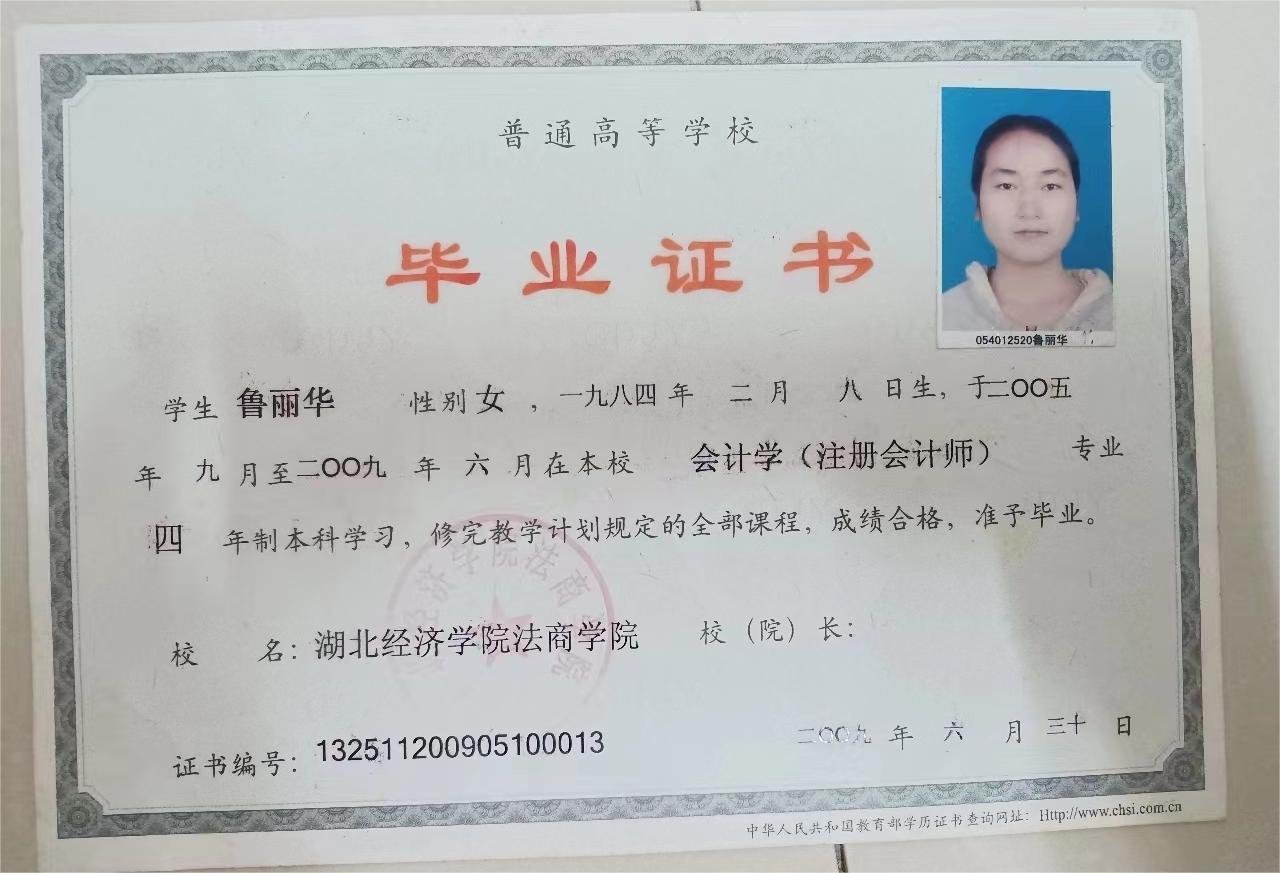 普通高等学校
毕业证书
054012520鲁丽华
学生 鲁丽华 性别 女 ，一九八四年 二月 八日生，于二〇〇五
年 九月至二〇〇九年 六月在本校 会计学（注册会计师） 专业
四 年制本科学习，修完教学计划规定的全部课程，成绩合格，准予毕业。
校 名：湖北经济学院法商学院 校（院）长：
证书编号：132511200905100013 二〇〇九年 六月 三十日
中华人民共和国教育部学历证书查询网址：Http://www.chsi.com.cn
经济学院法商学院